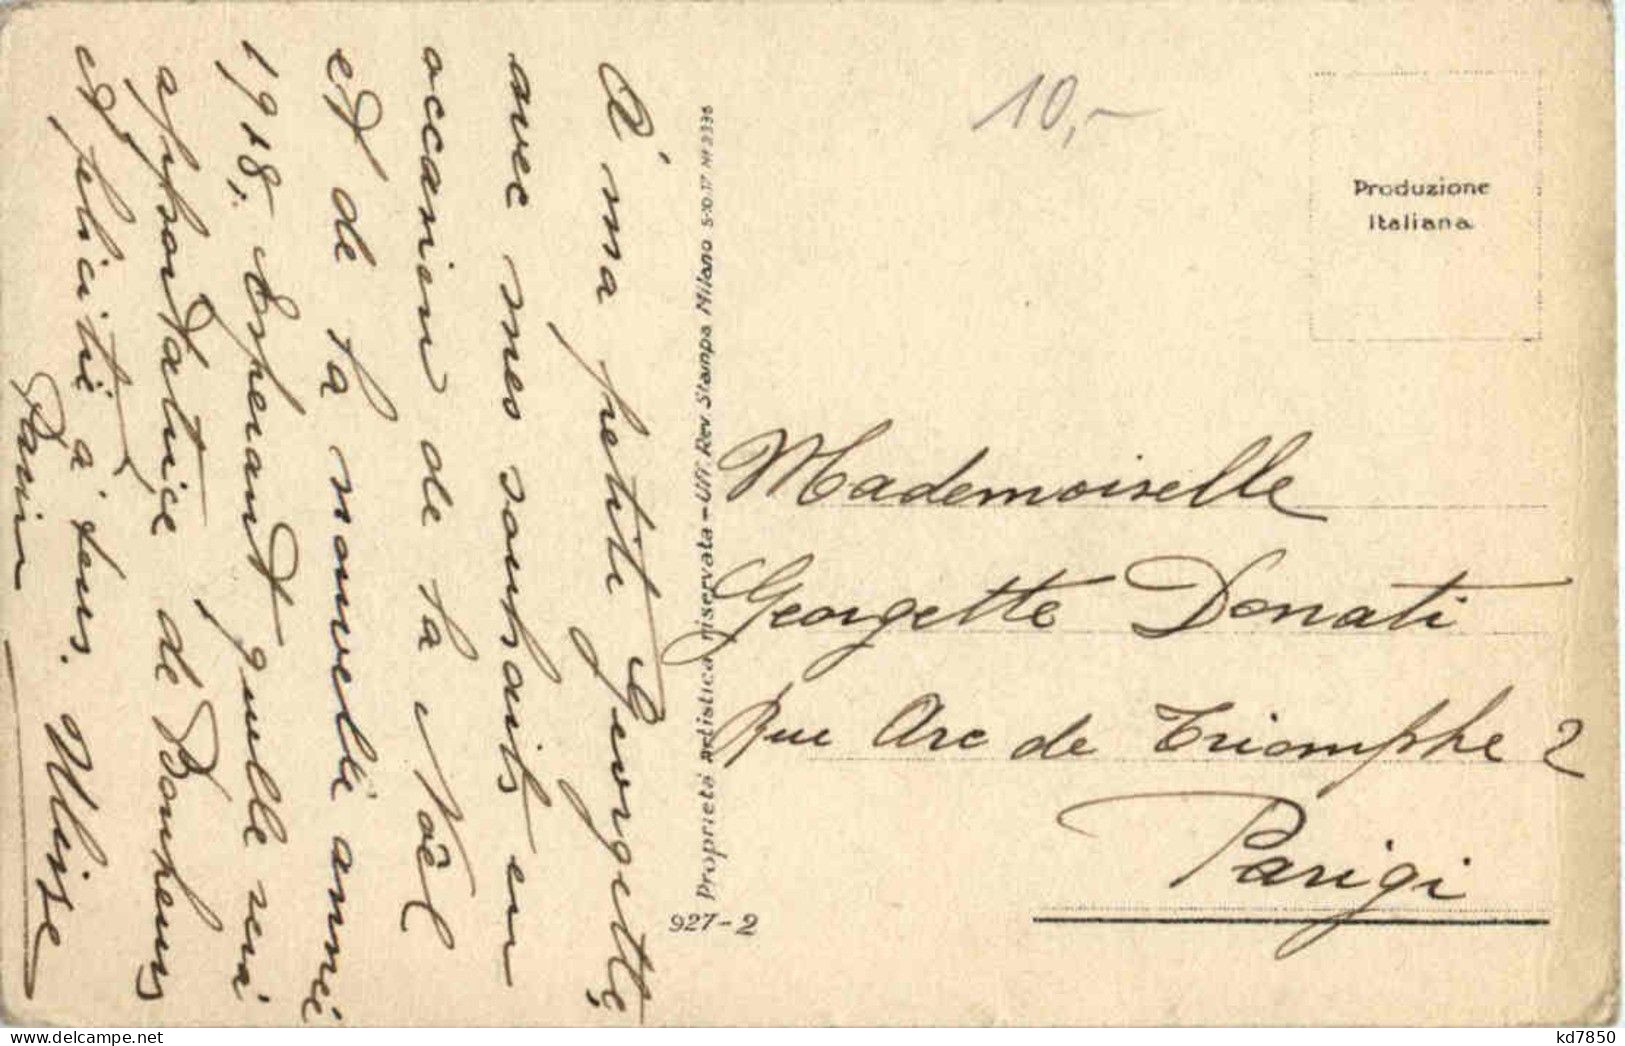 A ma petite Georgette
avec mes souhaits en
occasion de la Noël
et de la nouvelle année
1918, Espérant qu'elle sera
apportatrice de Bonheurs
et félicité à tous. Ulisse
10,-
Produzione
Italiana
Mademoiselle
Georgette Donati
Rue Arc de Triomphe 2
Parigi
Proprietà artistica riservata - Uff. Rev. Stampa Milano 5-10-17 N. 3338
927-2
kd7850